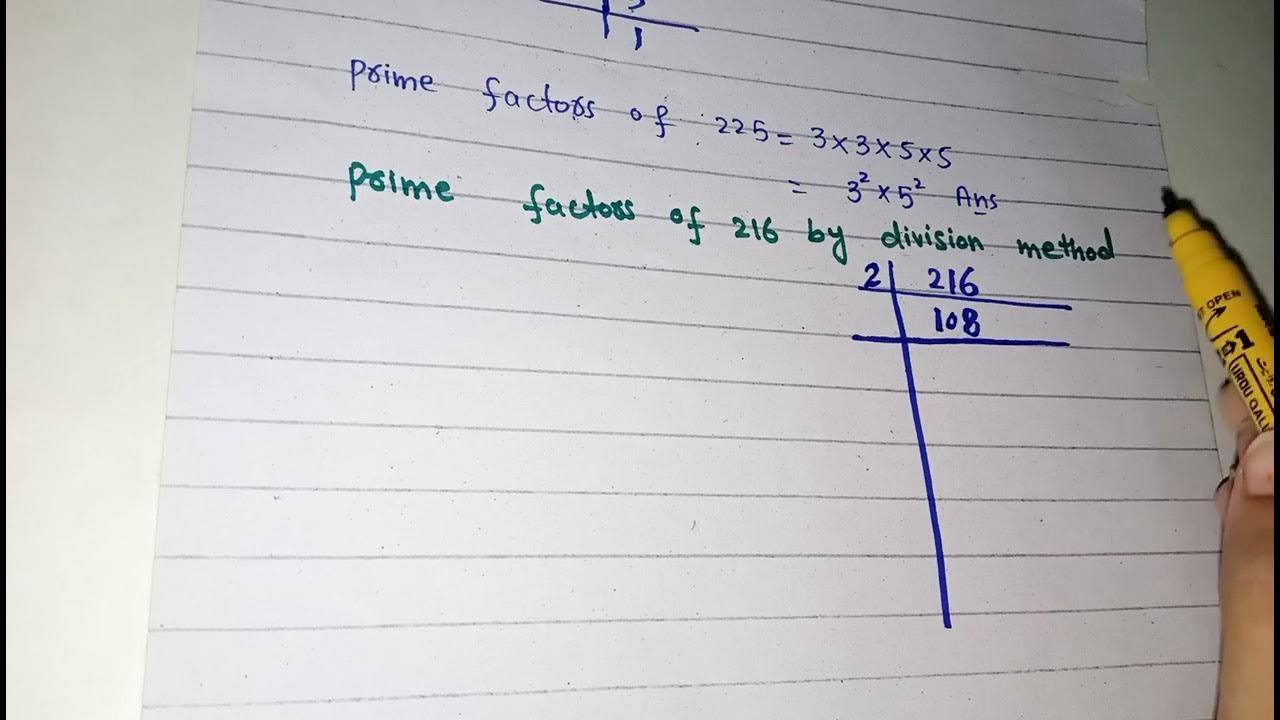 1
Prime factors of 225 = 3×3×5×5
= 3²×5² Ans
Prime factors of 216 by division method
2 | 216
108
OPEN
1
URDU